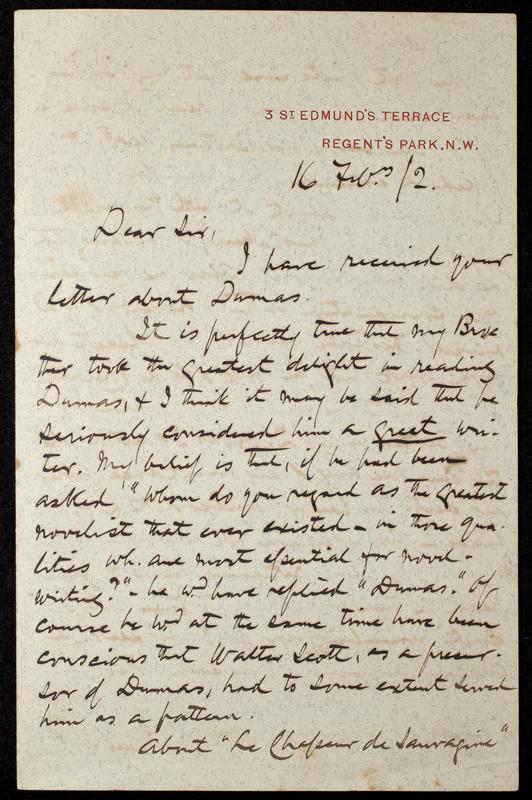 3 ST EDMUND'S TERRACE
REGENT'S PARK, N.W.
16 Feb. /2.
Dear Sir,
I have received your
letter about Dumas.
It is perfectly true that my Bro-
ther took the greatest delight in reading
Dumas, & I think it may be said that he
seriously considered him a great wri-
ter. My belief is that, if he had been
asked "Whom do you regard as the greatest
novelist that ever existed – in those qua-
lities wh. are most essential for novel-
writing?" – he wd have replied "Dumas." Of
course he wd at the same time have been
conscious that Walter Scott, as a precur-
sor of Dumas, had to some extent served
him as a pattern.
About "Le Chasseur de Sauvagine"